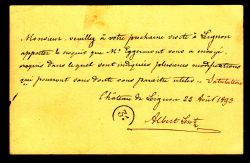 Monsieur, veuillez à votre prochaine visite à Lignon
apporter le croquis que Mr Eggimont vous a envoyé,
croquis dans lequel sont indiquées plusieurs modifications
qui peuvent sans doute vous paraître utiles. — Salutations
Château de Lignon 22 Août 1893
Albert